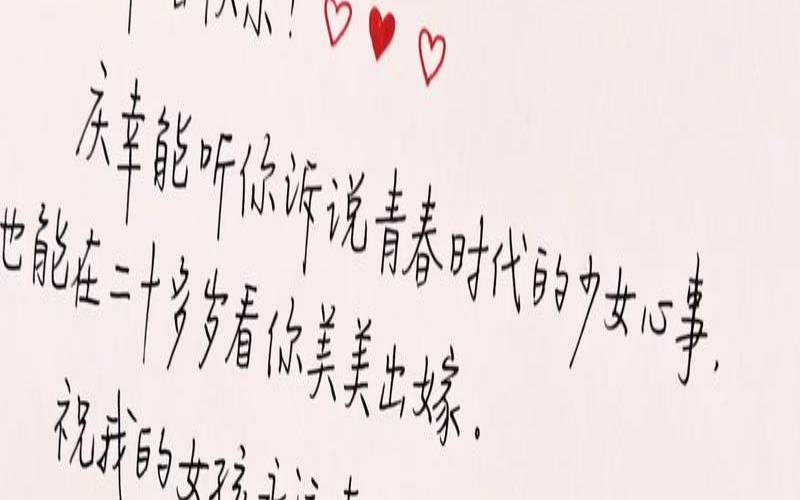 快乐！
庆幸能听你诉说青春时代的少女心事，
也能在二十多岁看你美美出嫁。
祝我的女孩永远